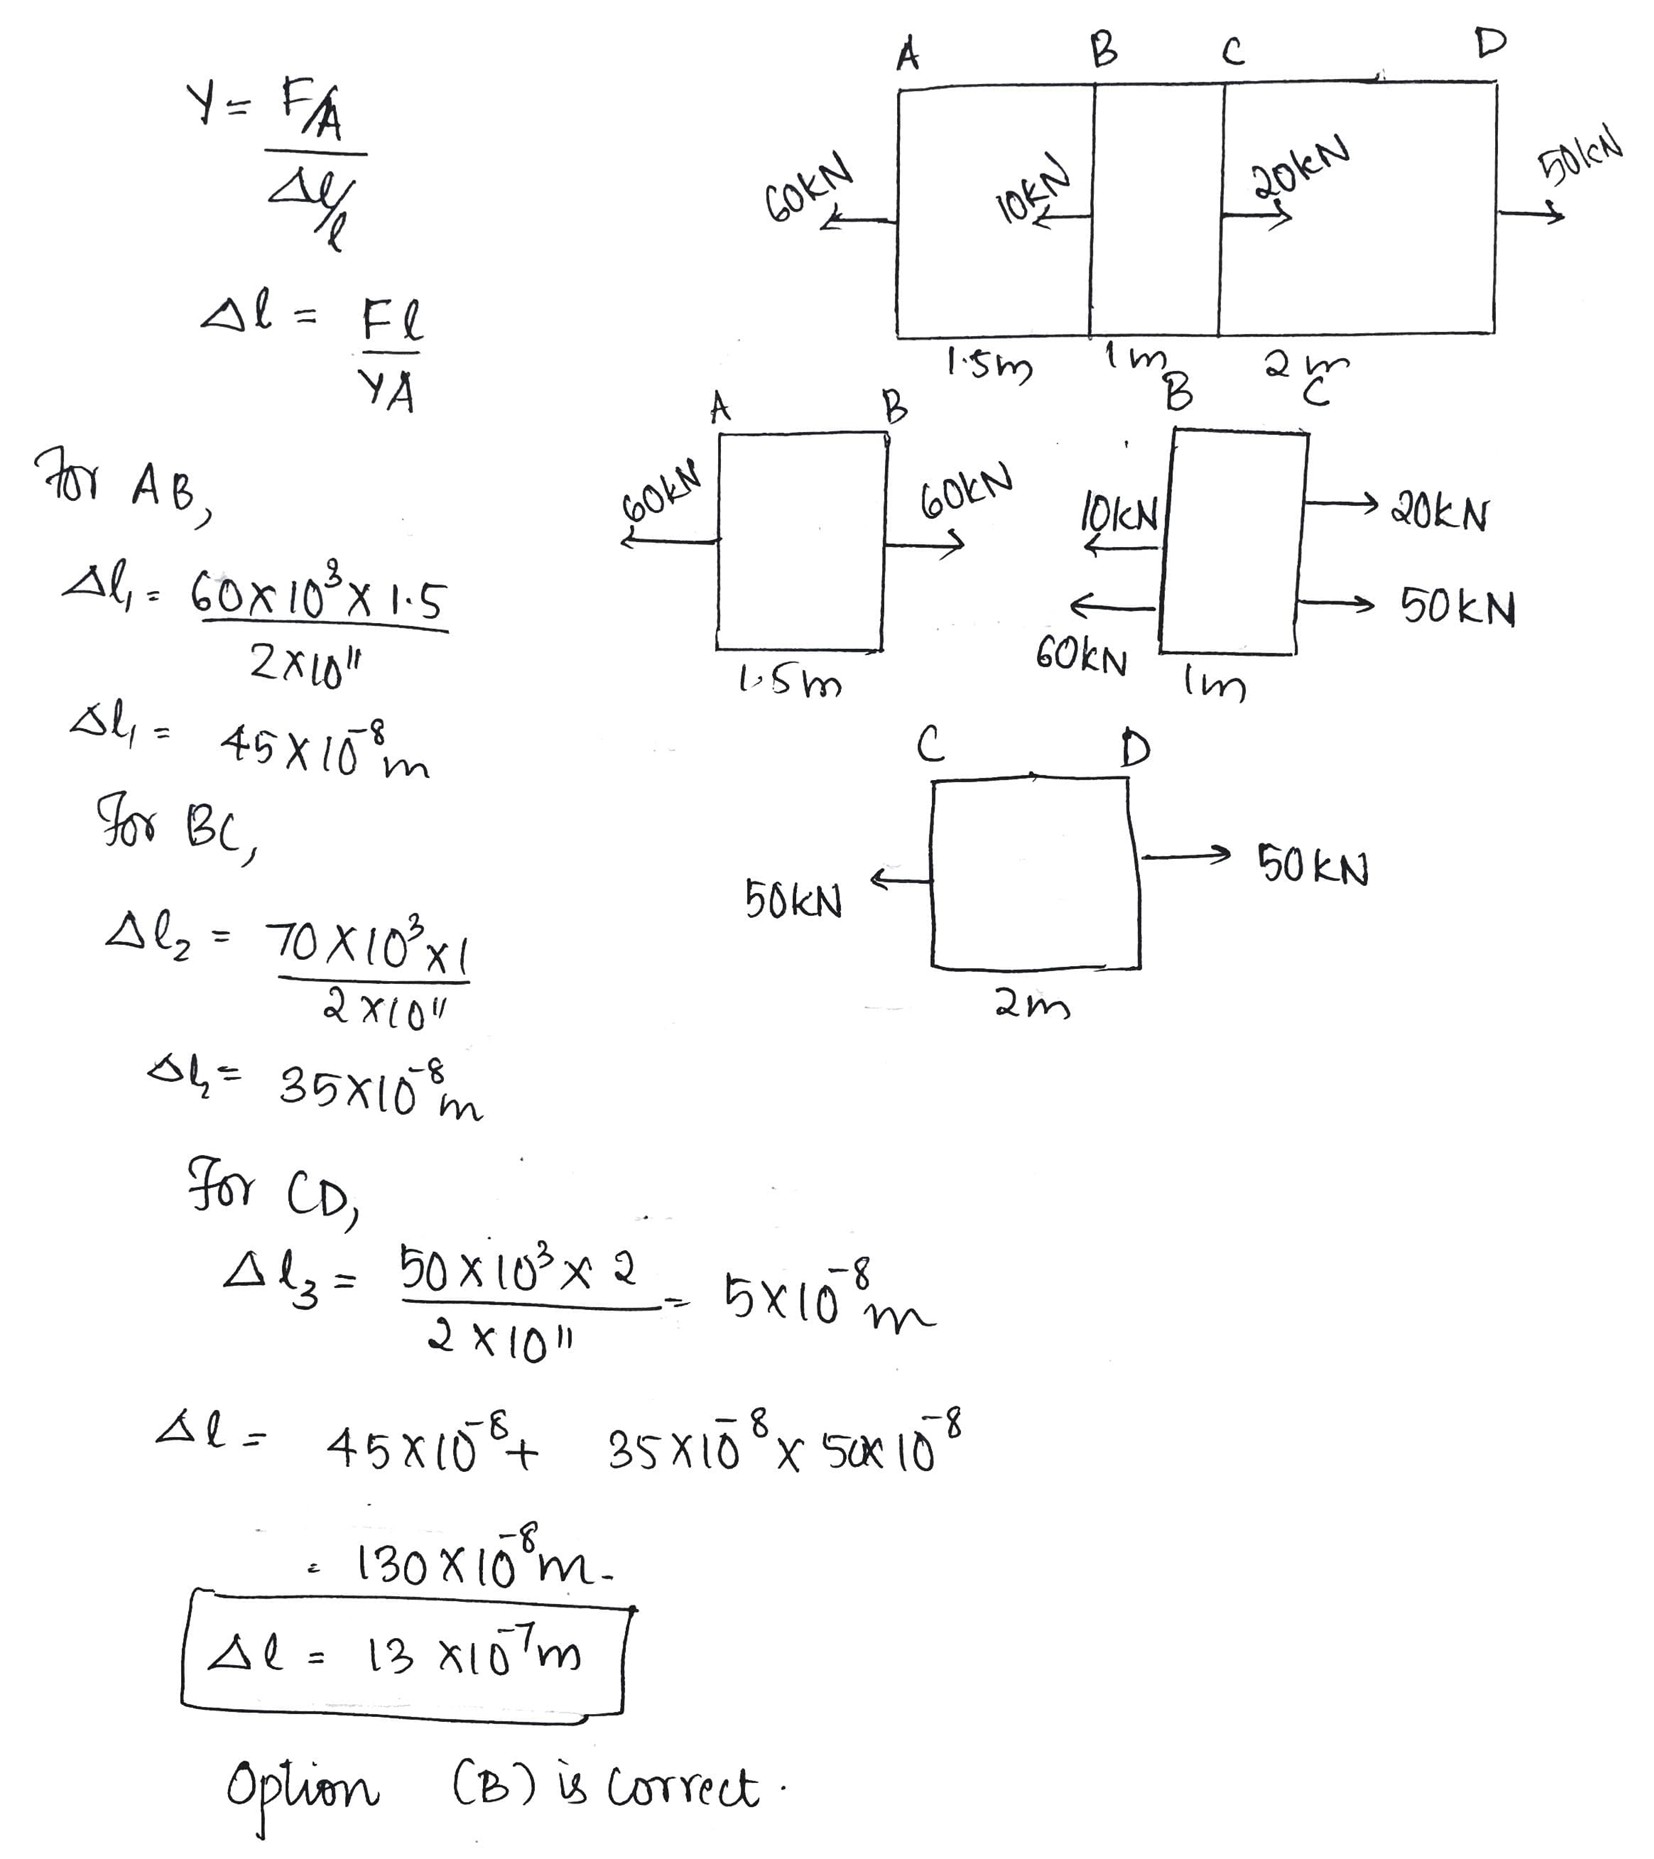 Y = F/A
Δl/l
Δl = Fl
YA
A B C D
60KN 10KN 20KN 50KN
1.5m 1m 2m
A B
60KN 60KN
1.5m
B C
10KN 20KN
60KN 50KN
1m
C D
50KN 50KN
2m
For AB,
Δl₁ = 60×10³×1.5
2×10¹¹
Δl₁ = 45×10⁻⁸m
For BC,
Δl₂ = 70×10³×1
2×10¹¹
Δl₂ = 35×10⁻⁸m
For CD,
Δl₃ = 50×10³×2 = 5×10⁻⁸m
2×10¹¹
Δl = 45×10⁻⁸ + 35×10⁻⁸ × 50×10⁻⁸
= 130×10⁻⁸m.
Δl = 13×10⁻⁷m
Option (B) is correct.